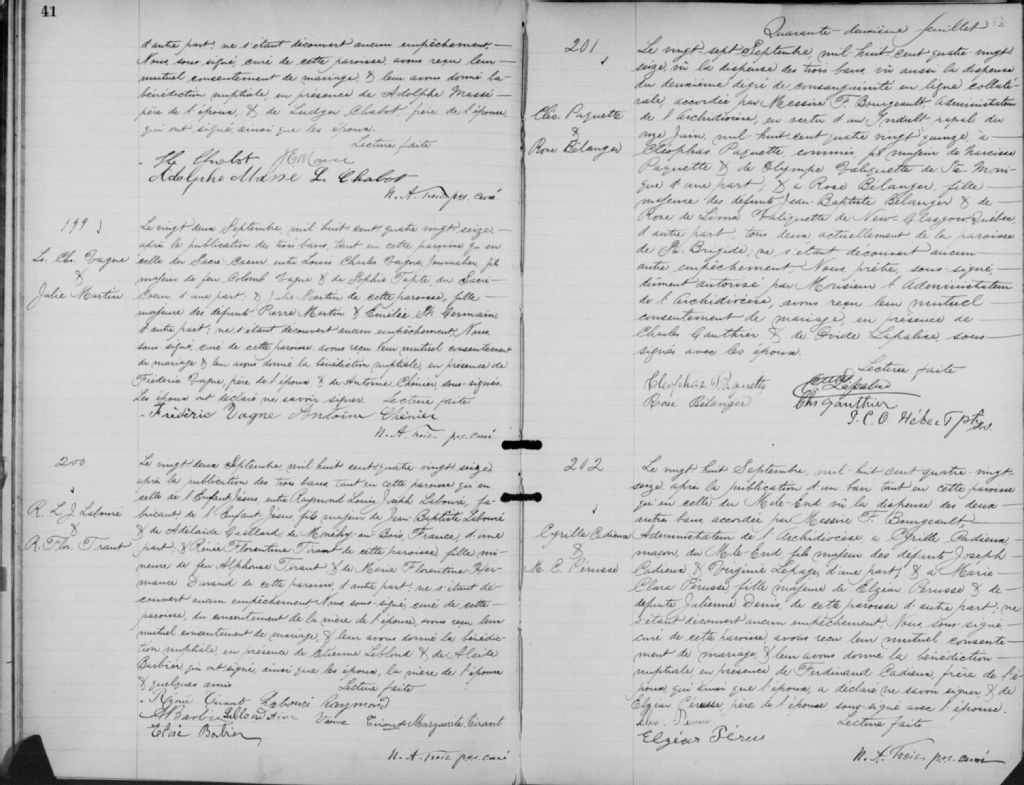 41
d'autre part, ne s'étant découvert aucun empêchement,
Nous sous-signé, curé de cette paroisse, avons reçu leur
mutuel consentement de mariage, & leur avons donné la
bénédiction nuptiale en présence de Adolphe Massé
père de l'époux, & de Ludger Chabot, père de l'épouse,
qui ont signé, ainsi que les époux.
Lecture faite
Chabot
Adolphe Masse L. Chabot
N. A. Troie p.s.s. curé
199
Ls. Chs. Vagne
&
Julie Martin
Le vingt deux Septembre, mil huit cent quatre vingt seize,
après la publication de trois bans, tant en cette paroisse qu'en
celle du Sacré-Coeur entre Louis Charles Vagne, Journalier, fils
majeur de feu Colomb Vagne & de Sophie du Sacré-
Coeur d'une part; & Julie Martin de cette paroisse, fille
majeure des défunts Pierre Martin & Emélie St. Germain
d'autre part, ne s'étant découvert aucun empêchement, Nous
sous-signé, curé de cette paroisse avons reçu leur mutuel consentement
de mariage & leur avons donné la bénédiction nuptiale, en présence de
Frédéric Vagne, père de l'époux & de Antoine Chénier, sous-signés.
Les époux ont déclaré ne savoir signer. Lecture faite
Frédéric Vagne Antoine Chénier
N. A. Troie p.s.s. curé
200
R. L. J. Labouré
&
R. Flor. Tirant
Le vingt deux Septembre, mil huit cent quatre-vingt seize,
après la publication des trois bans, tant en cette paroisse qu'en
celle de l'Enfant Jésus, entre Raymond Louis Joseph Labouré, fa-
bricant de l'Enfant Jésus, fils majeur de Jean-Baptiste Labouré
& de Adelaide Gaillard de en-Bois, France, d'une
part; & Renée Florentine Tirant de cette paroisse, fille mi-
neure de feu Alphonse Tirant & de Marie Florentine Her-
mance Durand de cette paroisse, d'autre part; ne s'étant dé-
couvert aucun empêchement Nous, sous-signé, curé de cette
paroisse, du consentement de la mère de l'épouse, avons reçu leur
mutuel consentement de mariage, & leur avons donné la bénédic-
tion nuptiale, en présence de Etienne Leblond & de Alcide
Barbier qui ont signé, ainsi que les époux, la mère de l'épouse
& quelques amis Lecture faite
Renée Tirant Labouré Raymond
A Barbier Leblond Veuve Tirant Marguerite Tirant
Elise Barbier
N. A. Troie p.s.s. curé
Quarante-deuxième feuillet
201
Cléo. Paquette
&
Rose Bélanger
Le vingt sept Septembre, mil huit cent quatre-vingt
seize, vû la dispense des trois bans, vû aussi la dispense
du deuxième degré de consanguinité en ligne collaté-
rale, accordée par Messire F. Bourgeault Administrateur
de l'Archidiocèse, en vertu d'un Indult papal du
onze Juin, mil-huit cent quatre vingt quinze, à
Cléophas Paquette commis, fils majeur de Narcisse
Paquette & de Olympe Valiquette de Ste. Moni-
que d'une part; & à Rose Bélanger, fille
majeure des défunts Jean-Baptiste Bélanger & de
Rose de Lima Valiquette de New-Glasgow, Québec
d'autre part, tous deux actuellement de la paroisse
de St. Brigide; ne s'étant découvert aucun
autre empêchement Nous, prêtre, sous-signé,
dûment autorisé par Monsieur l'Administrateur
de l'Archidiocèse, avons reçu leur mutuel
consentement de mariage, en présence de
Charles Gauthier & de Ovide Lapalice sous-
signés avec les époux.
Lecture faite
Cléophas Paquette Ovide Lapalice
Rose Bélanger Chs Gauthier
J. C. O. Hébert ptre
202
Cyrille Cadieux
&
M. C. Perusse
Le vingt huit Septembre, mil-huit cent quatre-vingt
seize après la publication d'un ban tant en cette paroisse
qu'en celle du Mile-End vû la dispense des deux
autres bans accordée par Messire F. Bourgeault
Administrateur de l'Archidiocèse à Cyrille Cadieux,
maçon, du Mile-End, fils majeur des défunts Joseph
Cadieux & Virginie Lepage, d'une part; & à Marie
Clara Perusse, fille majeure de Elzéar Perusse & de
défunte Julienne Denis, de cette paroisse d'autre part; ne
s'étant découvert aucun empêchement, Nous, sous-signé
curé de cette paroisse, avons reçu leur mutuel consente-
ment de mariage, & leur avons donné la bénédiction
nuptiale, en présence de Ferdinand Cadieux, frère de l'é-
poux, qui ainsi que l'époux, a déclaré ne savoir signer, & de
Elzéar Perusse, père de l'épouse sous-signé avec l'épouse.
Lecture faite
Elzéar Pérus
N. A. Troie p.s.s. curé